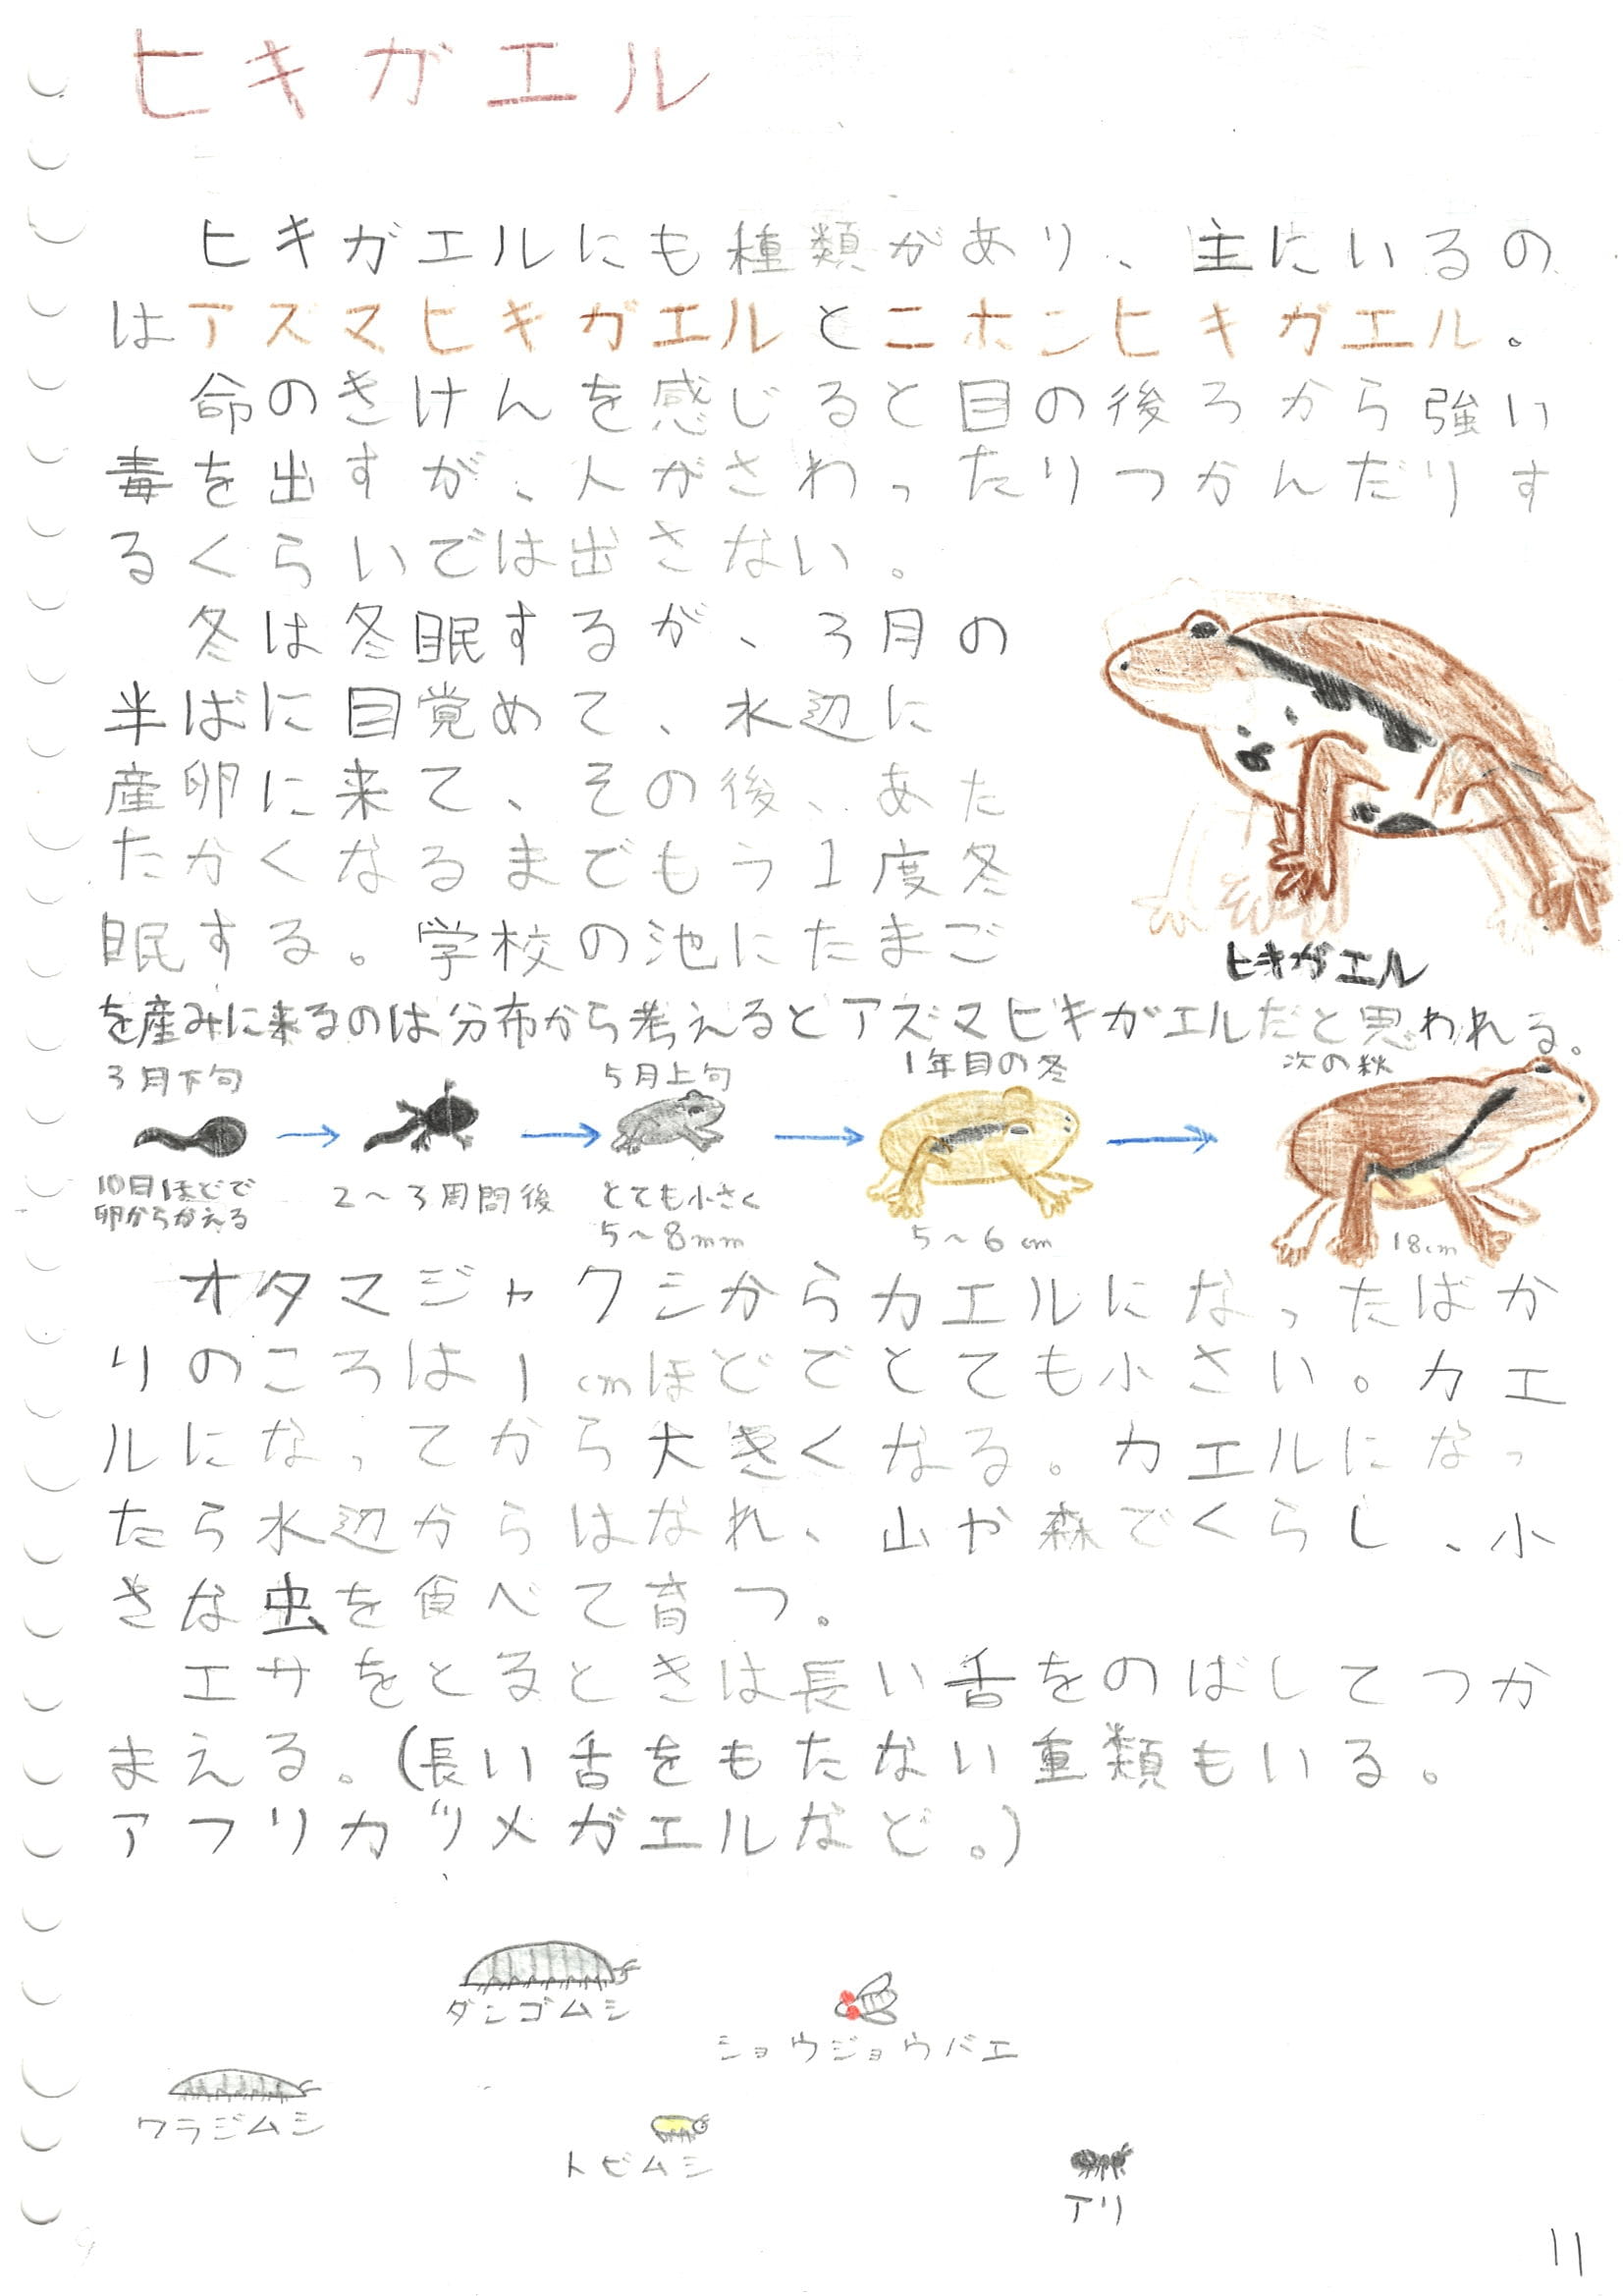 ヒキガエル
ヒキガエルにも種類があり、主にいるの
はアズマヒキガエルとニホンヒキガエル。
命のきけんを感じると目の後ろから強い
毒を出すが、人がさわったりつかんだりす
るくらいでは出さない。
冬は冬眠するが、3月の
半ばに目覚めて、水辺に
産卵に来て、その後、あた
たかくなるまでもう1度冬
眠する。学校の池にたまご
を産みに来るのは分布から考えるとアズマヒキガエルだと思われる。
ヒキガエル
3月下旬
5月上旬
1年目の冬
次の秋
10日ほどで
卵からかえる
2〜3周間後
とても小さく
5〜8mm
5〜6cm
18cm
オタマジャクシからカエルになったばか
りのころは1cmほどでとても小さい。カエ
ルになってから大きくなる。カエルになっ
たら水辺からはなれ、山や森でくらし、小
さな虫を食べて育つ。
エサをとるときは長い舌をのばしてつか
まえる。(長い舌をもたない重類もいる。
アフリカヅメガエルなど。)
ダンゴムシ
ショウジョウバエ
ワラジムシ
トビムシ
アリ
9
11